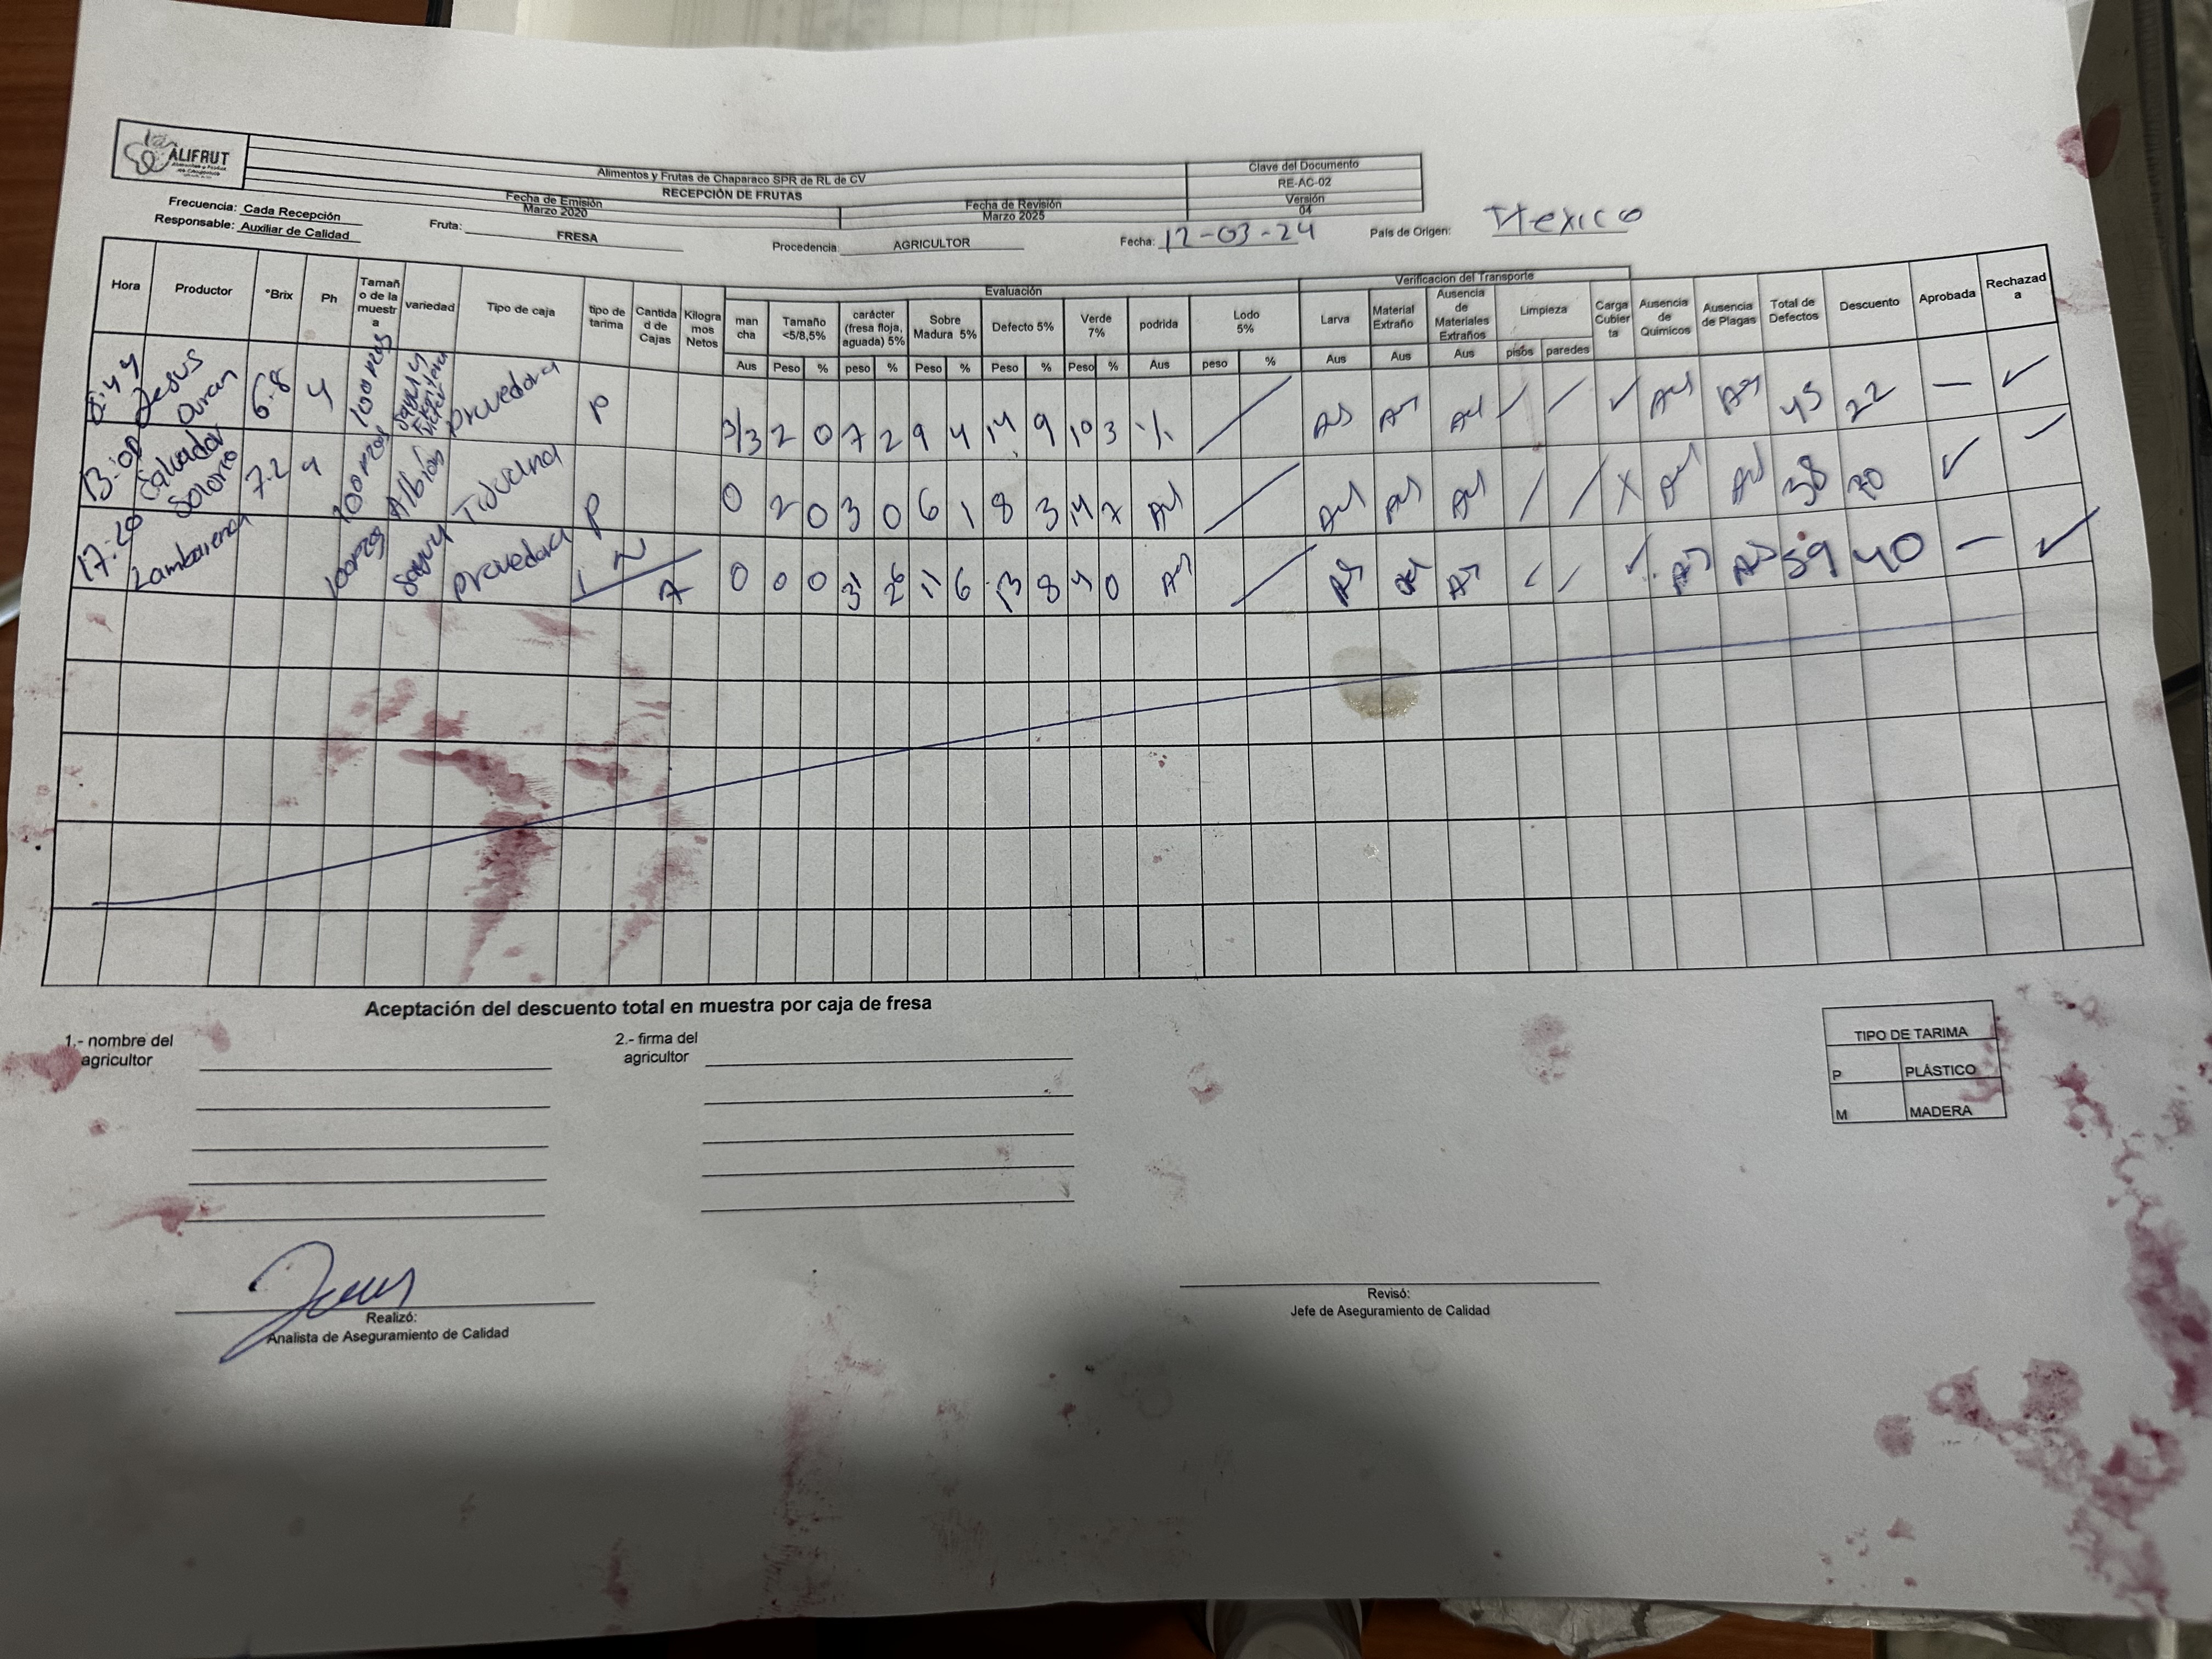 ALIFRUT
Alimentos y Frutas de Chaparaco SPR de RL de CV
RECEPCIÓN DE FRUTAS
Clave del Documento
RE-AC-02
Fecha de Emisión
Marzo 2020
Fecha de Revisión
Marzo 2025
Versión
04
Frecuencia: Cada Recepción
Responsable: Auxiliar de Calidad
Fruta: FRESA Procedencia AGRICULTOR Fecha: 12-03-24 País de Origen: Mexico
Evaluación Verificacion del Transporte
Hora Productor °Brix Ph Tamañ o de la muestr a variedad Tipo de caja tipo de tarima Cantida d de Cajas Kilogra mos Netos man cha Tamaño <5/8,5% carácter (fresa floja, aguada) 5% Sobre Madura 5% Defecto 5% Verde 7% podrida Lodo 5% Larva Material Extraño Ausencia de Materiales Extraños Limpieza Carga Cubier ta Ausencia de Químicos Ausencia de Plagas Total de Defectos Descuento Aprobada Rechazad a
Aus Peso % peso % Peso % Peso % Peso % Aus peso % Aus Aus Aus pisos paredes
Jesus Duran 6.8 4 100 pzas proveedora P 3/3 2 0 7 2 9 4 14 9 10 3 / Aus Aus Aus / / ✓ Aus Aus 43 22 — ✓
13:00 Salvador Solorio 7.2 4 100 pzas Albión P 0 2 0 3 0 6 1 8 3 14 7 Aus / Aus Aus Aus / / X Aus Aus 38 20 ✓ —
17:20 Zambarena 100pzas proveedora 0 0 0 31 26 11 6 13 8 4 0 Aus / Aus Aus Aus / / ✓ Aus Aus 59 40 — ✓
Aceptación del descuento total en muestra por caja de fresa
1.- nombre del agricultor
2.- firma del agricultor
TIPO DE TARIMA
P PLÁSTICO
M MADERA
Realizó:
Analista de Aseguramiento de Calidad
Revisó:
Jefe de Aseguramiento de Calidad